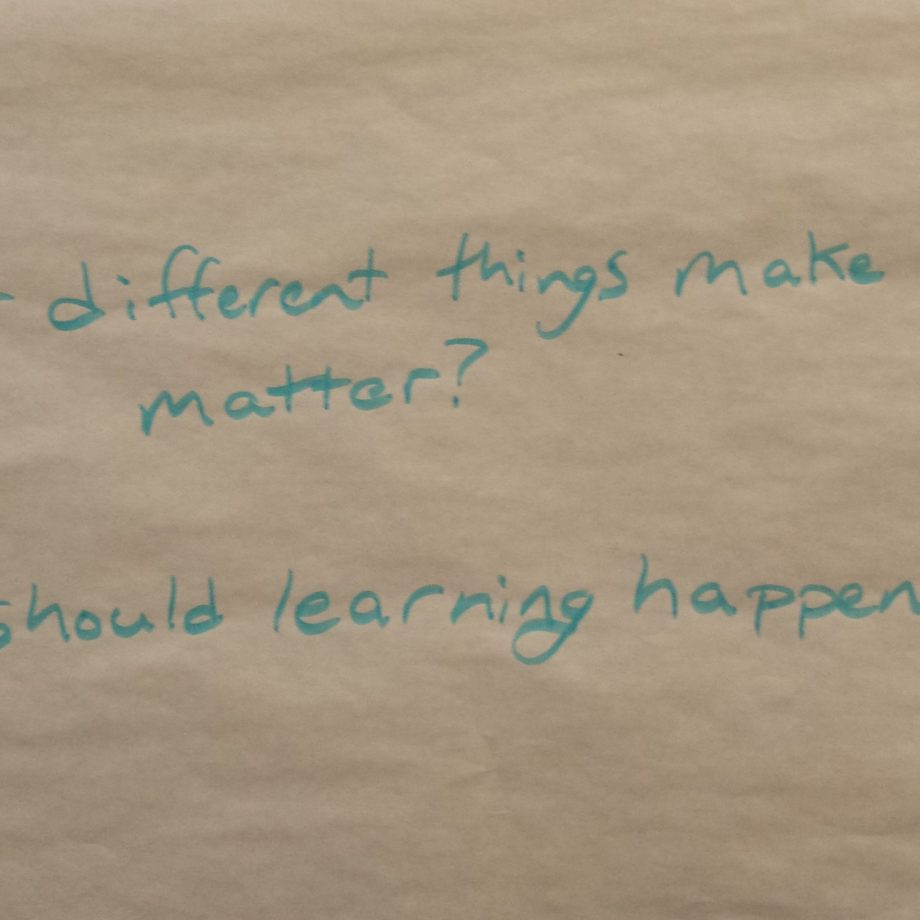 different things make
matter?
should learning happen